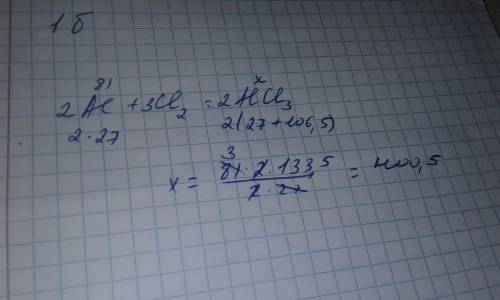 1 б
81 x
2Al + 3Cl₂ = 2AlCl₃
2·27 2(27+106,5)
x = 3 81·2·133,5 / 2·27 = 400,5